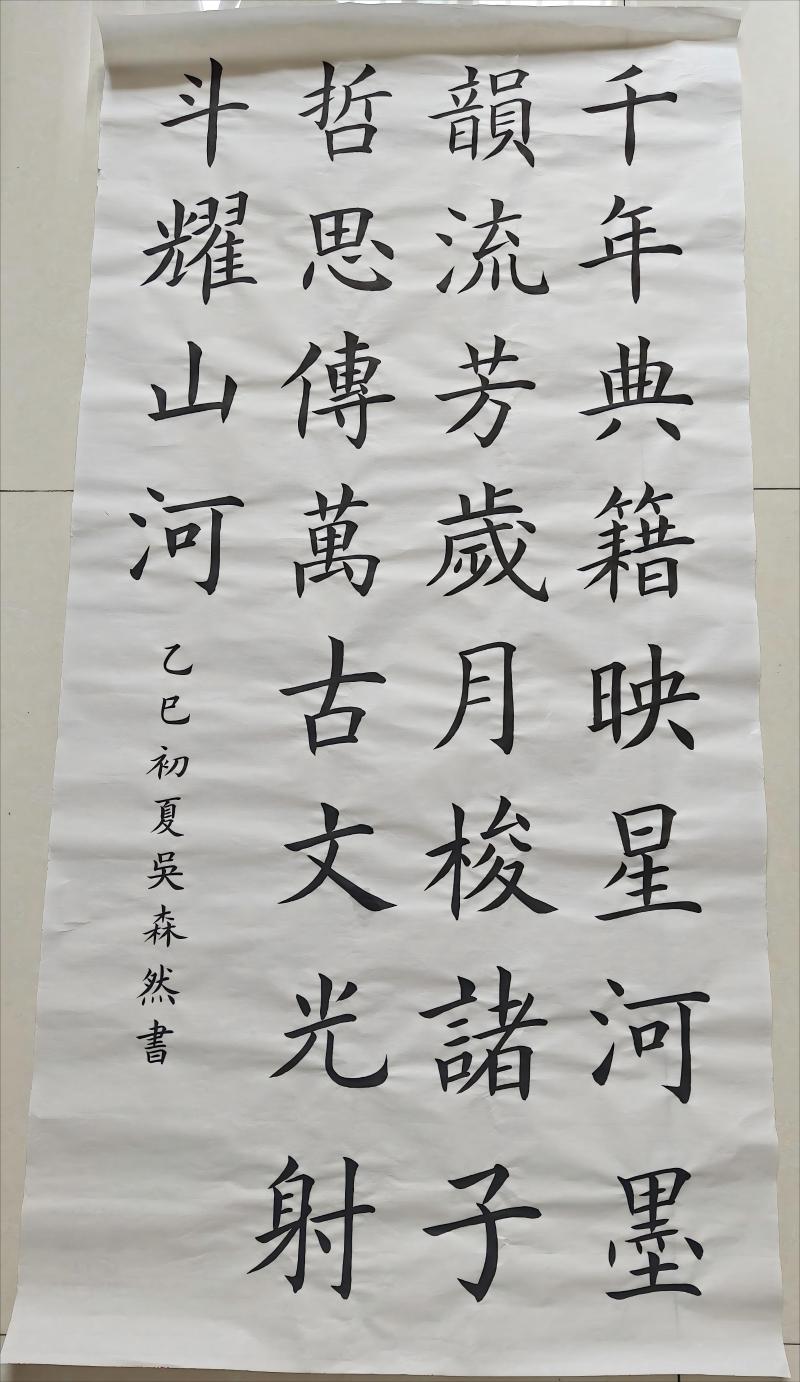 千年典籍映星河墨
韻流芳歲月梭諸子
哲思傳萬古文光射
斗耀山河
乙巳初夏吳森然書